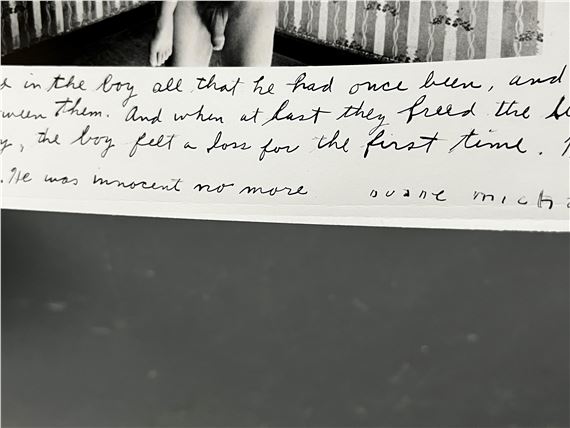 in the boy all that he had once been, and
them. And when at last they freed the
, the boy felt a loss for the first time.
. He was innocent no more DUANE MICHA